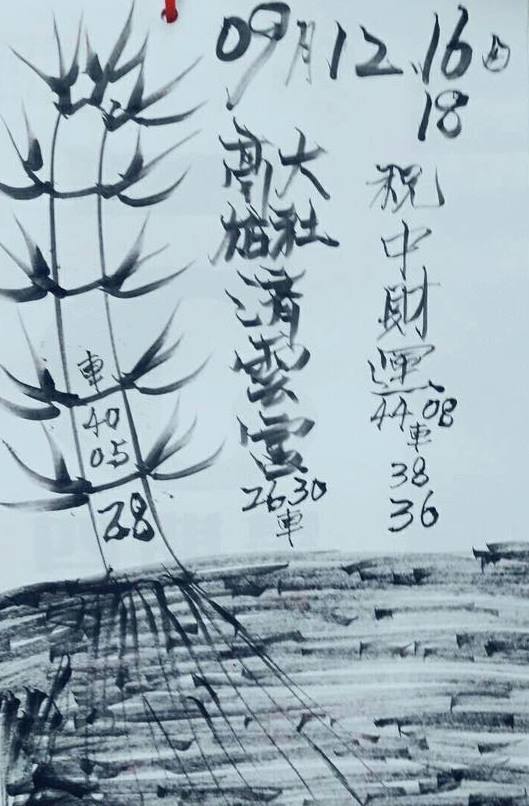 09月12.16日
18
高雄大社
清雲宮
26.30
車
祝中財運
44.08
車
38
36
車
40
05
38